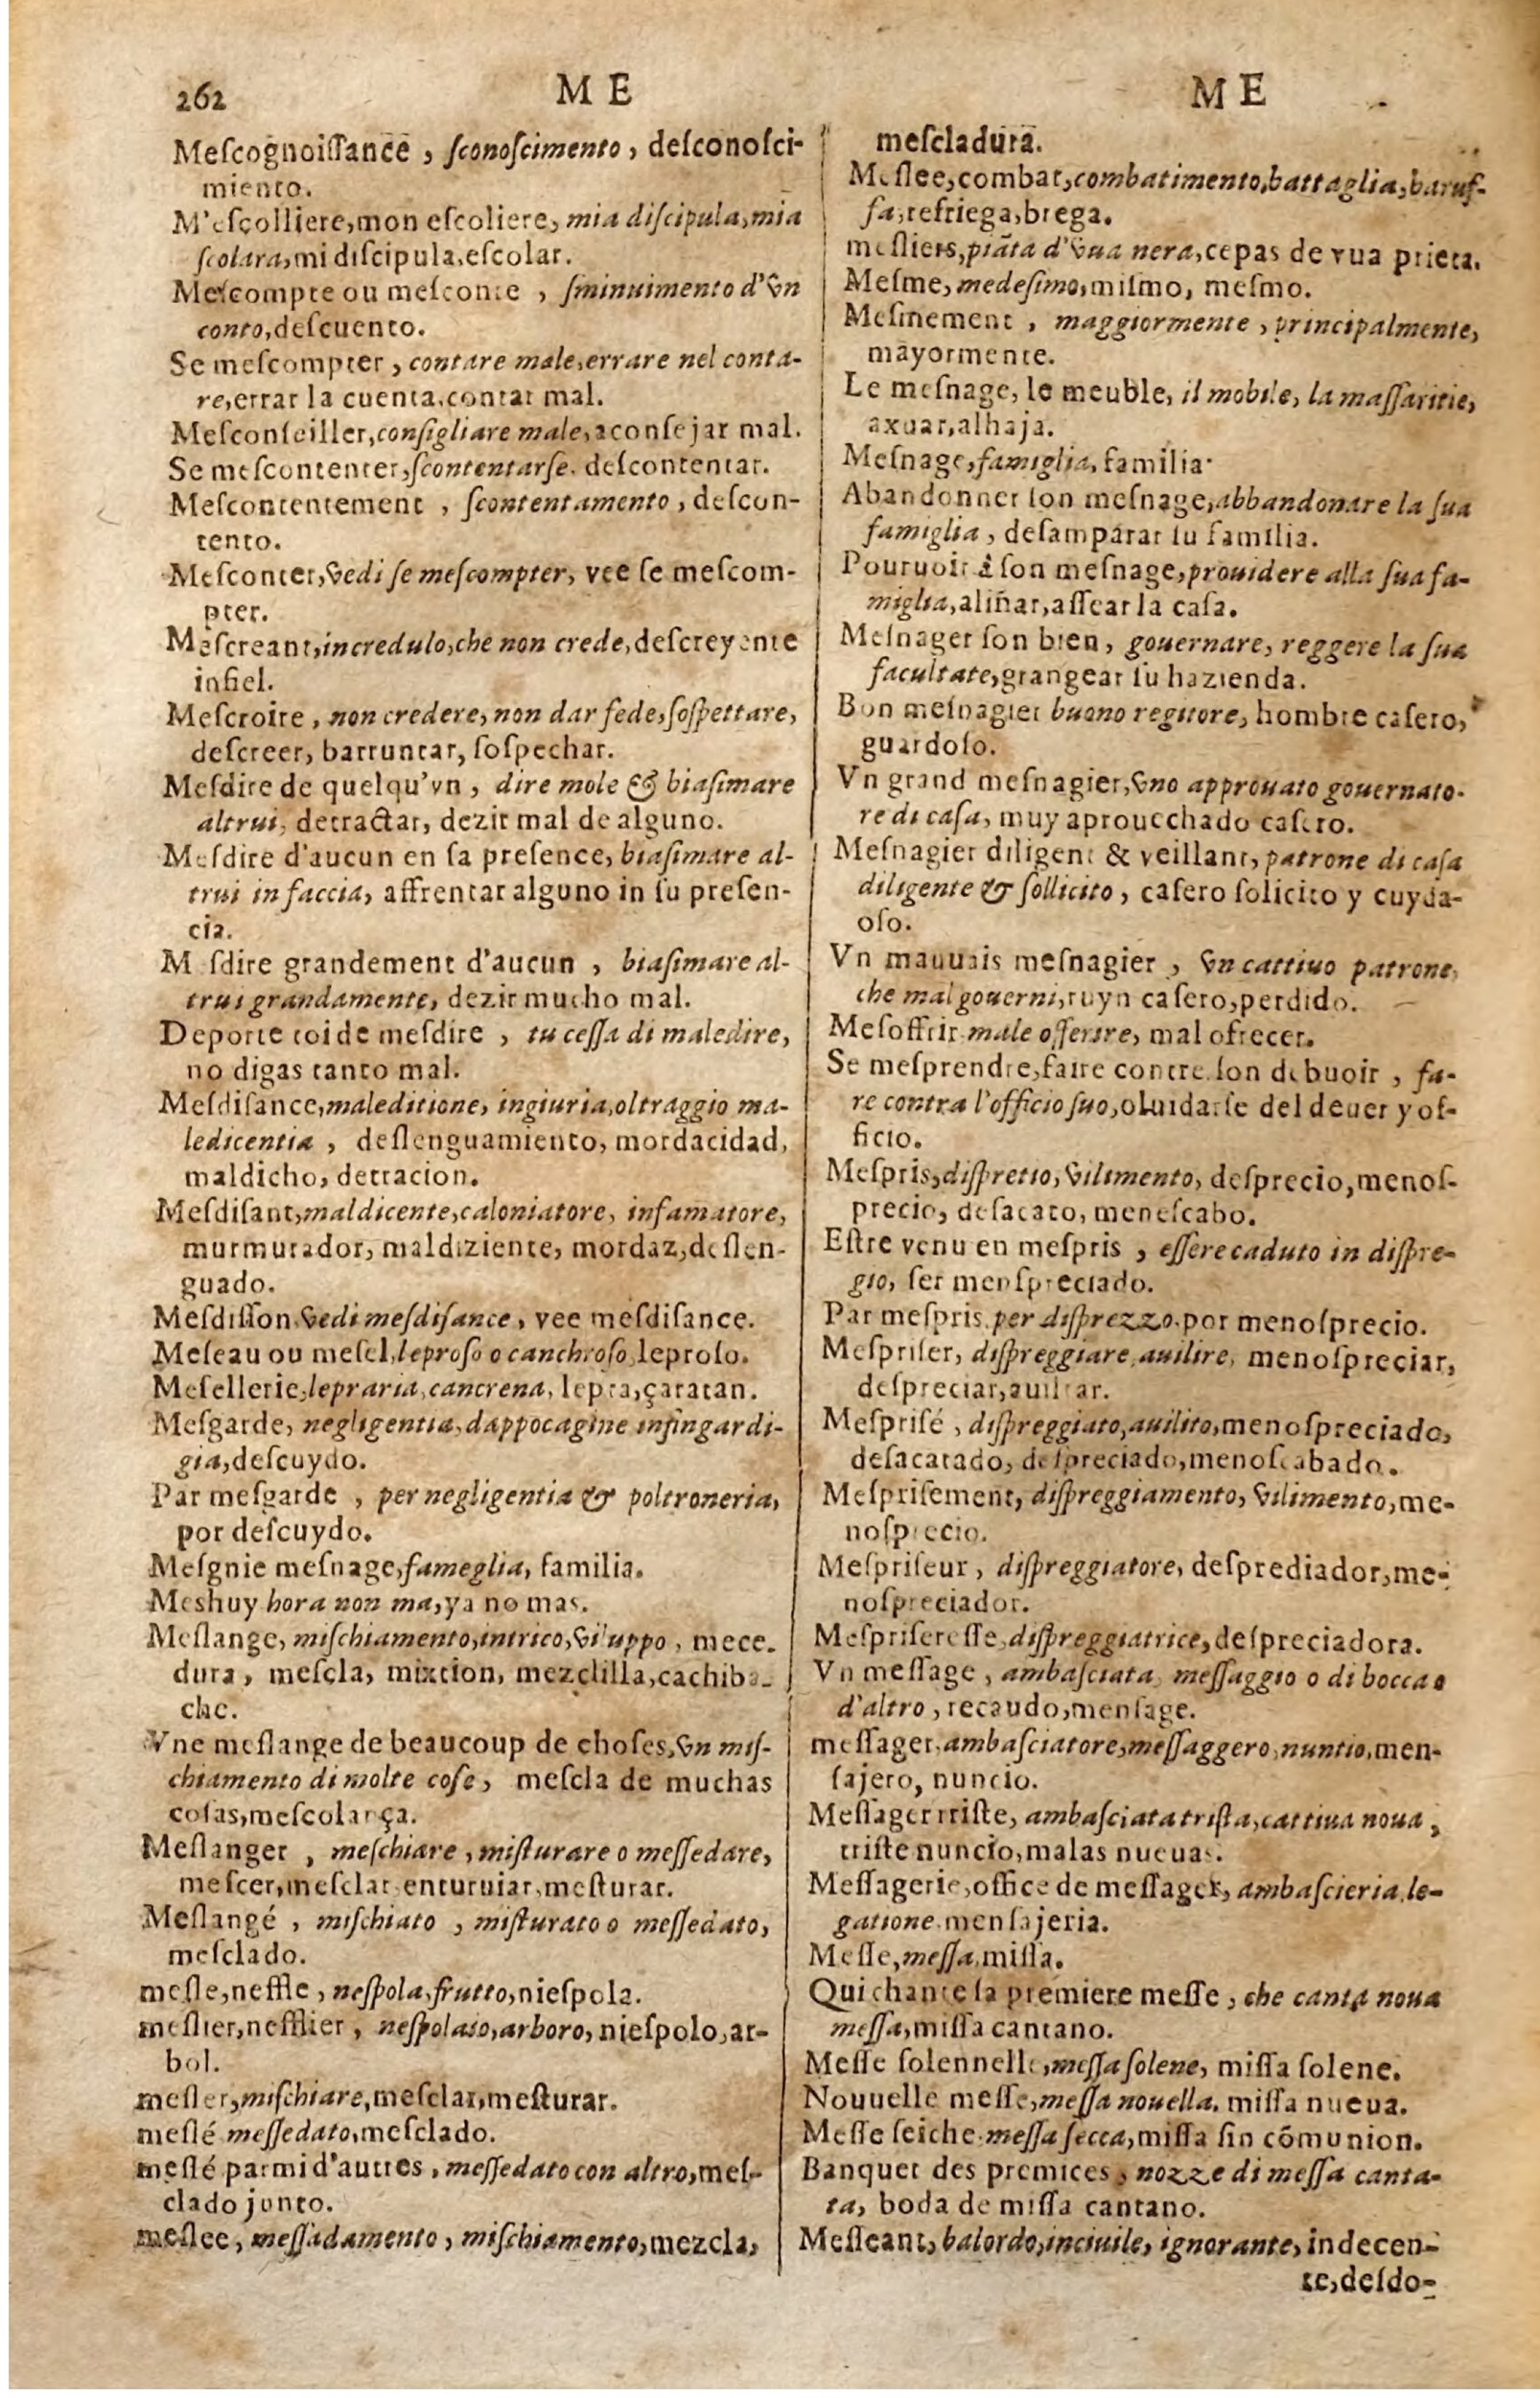 262
M E
Meſcognoiſſance, ſconoſcimento, deſconoſci-
miento.
M'eſcolliere, mon eſcoliere, mia diſcipula, mia
ſcolara, mi diſcipula, eſcolar.
Meſcompte ou meſconte, ſminuimento d'vn
conto, deſcuento.
Se meſcompter, contare male, errare nel conta-
re, errar la cuenta, contar mal.
Meſconſeiller, conſigliare male, aconſejar mal.
Se meſcontenter, ſcontentarſe. deſcontentar.
Meſcontentement, ſcontentamento, deſcon-
tento.
Meſconter, vedi ſe meſcompter, vee ſe meſcom-
pter.
Meſcreant, incredulo, che non crede, deſcreyente
infiel.
Meſcroire, non credere, non dar fede, ſoſpettare,
deſcreer, barruntar, ſoſpechar.
Meſdire de quelqu'vn, dire mole & biaſimare
altrui, detractar, dezir mal de alguno.
Meſdire d'aucun en ſa preſence, biaſimare al-
trui in faccia, affrentar alguno in ſu preſen-
cia.
M ſdire grandement d'aucun, biaſimare al-
trui grandamente, dezir mucho mal.
Deporte toi de meſdire, tu ceſſa di maledire,
no digas tanto mal.
Meſdiſance, maleditione, ingiuria, oltraggio ma-
ledicentia, deſlenguamiento, mordacidad,
maldicho, detracion.
Meſdiſant, maldicente, caloniatore, infamatore,
murmurador, maldiziente, mordaz, deſlen-
guado.
Meſdiſſon, vedi meſdiſance, vee meſdiſance.
Meſeau ou meſel, leproſo o canchroſo, leproſo.
Meſellerie, lepraria, cancrena, lepra, çaratan.
Meſgarde, negligentia, dappocagine infingardi-
gia, deſcuydo.
Par meſgarde, per negligentia & poltroneria,
por deſcuydo.
Meſgnie meſnage, fameglia, familia.
Meshuy hora non ma, ya no mas.
Meſlange, miſchiamento, intrico, viluppo, mece-
dura, meſcla, mixtion, mezclilla, cachiba-
che.
Vne meſlange de beaucoup de choſes, vn miſ-
chiamento di molte coſe, meſcla de muchas
coſas, meſcolança.
Meſlanger, meſchiare, miſturare o meſſedare,
meſcer, meſclar, enturuiar, meſturar.
Meſlangé, miſchiato, miſturato o meſſedato,
meſclado.
meſle, neffle, neſpola, frutto, nieſpola.
meſlier, nefflier, neſpolaio, arboro, nieſpolo, ar-
bol.
meſler, miſchiare, meſclar, meſturar.
meſlé meſſedato, meſclado.
meſlé parmi d'autres, meſſedato con altro, meſ-
clado junto.
meſlee, meſſadamento, miſchiamento, mezcla,
M E
meſcladura.
Meſlee, combat, combatimento, battaglia, baruf-
fa, refriega, brega.
meſliers, piāta d'vua nera, cepas de vua prieta.
Meſme, medeſimo, miſmo, meſmo.
Meſmement, maggiormente, principalmente,
mayormente.
Le meſnage, le meuble, il mobile, la maſſaritie,
axuar, alhaja.
Meſnage, famiglia, familia.
Abandonner ſon meſnage, abbandonare la ſua
famiglia, deſamparar ſu familia.
Pouruoir à ſon meſnage, prouidere alla ſua fa-
miglia, aliñar, aſſear la caſa.
Meſnager ſon bien, gouernare, reggere la ſua
facultate, grangear ſu hazienda.
Bon meſnagier buono regitore, hombre caſero,
guardoſo.
Vn grand meſnagier, vno approuato gouernato-
re di caſa, muy aprouechado caſero.
Meſnagier diligent & veillant, patrone di caſa
diligente & ſollicito, caſero ſolicito y cuyda-
oſo.
Vn mauuais meſnagier, vn cattiuo patrone,
che mal gouerni, ruyn caſero, perdido.
Meſoffrir male offerire, mal ofrecer.
Se meſprendre, faire contre ſon debuoir, fa-
re contra l'officio ſuo, oluidarſe del deuer y of-
ficio.
Meſpris, diſpretio, vilimento, deſprecio, menoſ-
precio, deſacato, meneſcabo.
Eſtre venu en meſpris, eſſere caduto in diſpre-
gio, ſer menſpreciado.
Par meſpris, per diſprezzo, por menoſprecio.
Meſpriſer, diſpreggiare, auilire, menoſpreciar,
deſpreciar, auiltar.
Meſpriſé, diſpreggiato, auilito, menoſpreciado,
deſacatado, deſpreciado, menoſcabado.
Meſpriſement, diſpreggiamento, vilimento, me-
noſprecio.
Meſpriſeur, diſpreggiatore, deſprediador, me-
noſpreciador.
Meſpriſereſſe, diſpreggiatrice, deſpreciadora.
Vn meſſage, ambaſciata, meſſaggio o di bocca o
d'altro, recaudo, menſage.
meſſager, ambaſciatore, meſſaggero, nuntio, men-
ſajero, nuncio.
Meſſager triſte, ambaſciata triſta, cattiua noua,
triſte nuncio, malas nueuas.
Meſſagerie, office de meſſager, ambaſcieria, le-
gatione, menſajeria.
Meſſe, meſſa, miſſa.
Qui chante ſa premiere meſſe, che canta noua
meſſa, miſſa cantano.
Meſſe ſolennelle, meſſa ſolene, miſſa ſolene.
Nouuelle meſſe, meſſa nouella, miſſa nueua.
Meſſe ſeiche meſſa ſecca, miſſa ſin cōmunion.
Banquet des premices, nozze di meſſa canta-
ta, boda de miſſa cantano.
Meſſeant, balordo, inciuile, ignorante, indecen-
te, deſdo-